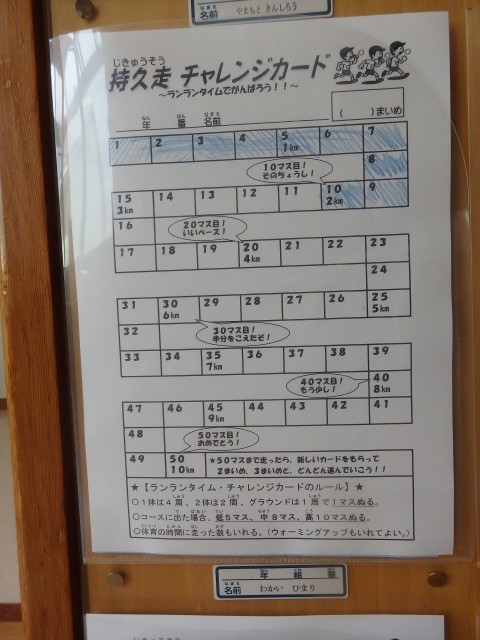 なまえ
名前 やまもと きんしろう
じきゅうそう
持久走 チャレンジカード
～ランランタイムでがんばろう！！～
( )まいめ
ねん ばん なまえ
年 番 名前
1 2 3 4 5 6 7
1km
8
10マス目！
そのちょうし！
15 14 13 12 11 10 9
3km 2km
16
20マス目！
いいペース！
17 18 19 20 21 22 23
4km
24
31 30 29 28 27 26 25
6km 5km
32
30マス目！
半分をこえたぞ！
33 34 35 36 37 38 39
7km
40マス目！
もう少し！
40
8km
47 46 45 44 43 42 41
9km
48
50マス目！
おめでとう！
49 50
10km
★50マスまで走ったら、新しいカードをもらって
2まいめ、3まいめと、どんどん進んでいこう！！
★【ランランタイム・チャレンジカードのルール】★
○1体は4周、2体は2周、グラウンドは1周で1マスぬる。
○コースに出た場合、低5マス、中8マス、高10マスぬる。
○体育の時間に走った数もいれる。（ウォーミングアップもいれてよい。）
年 組 番
なまえ
名前 わかい ひまり